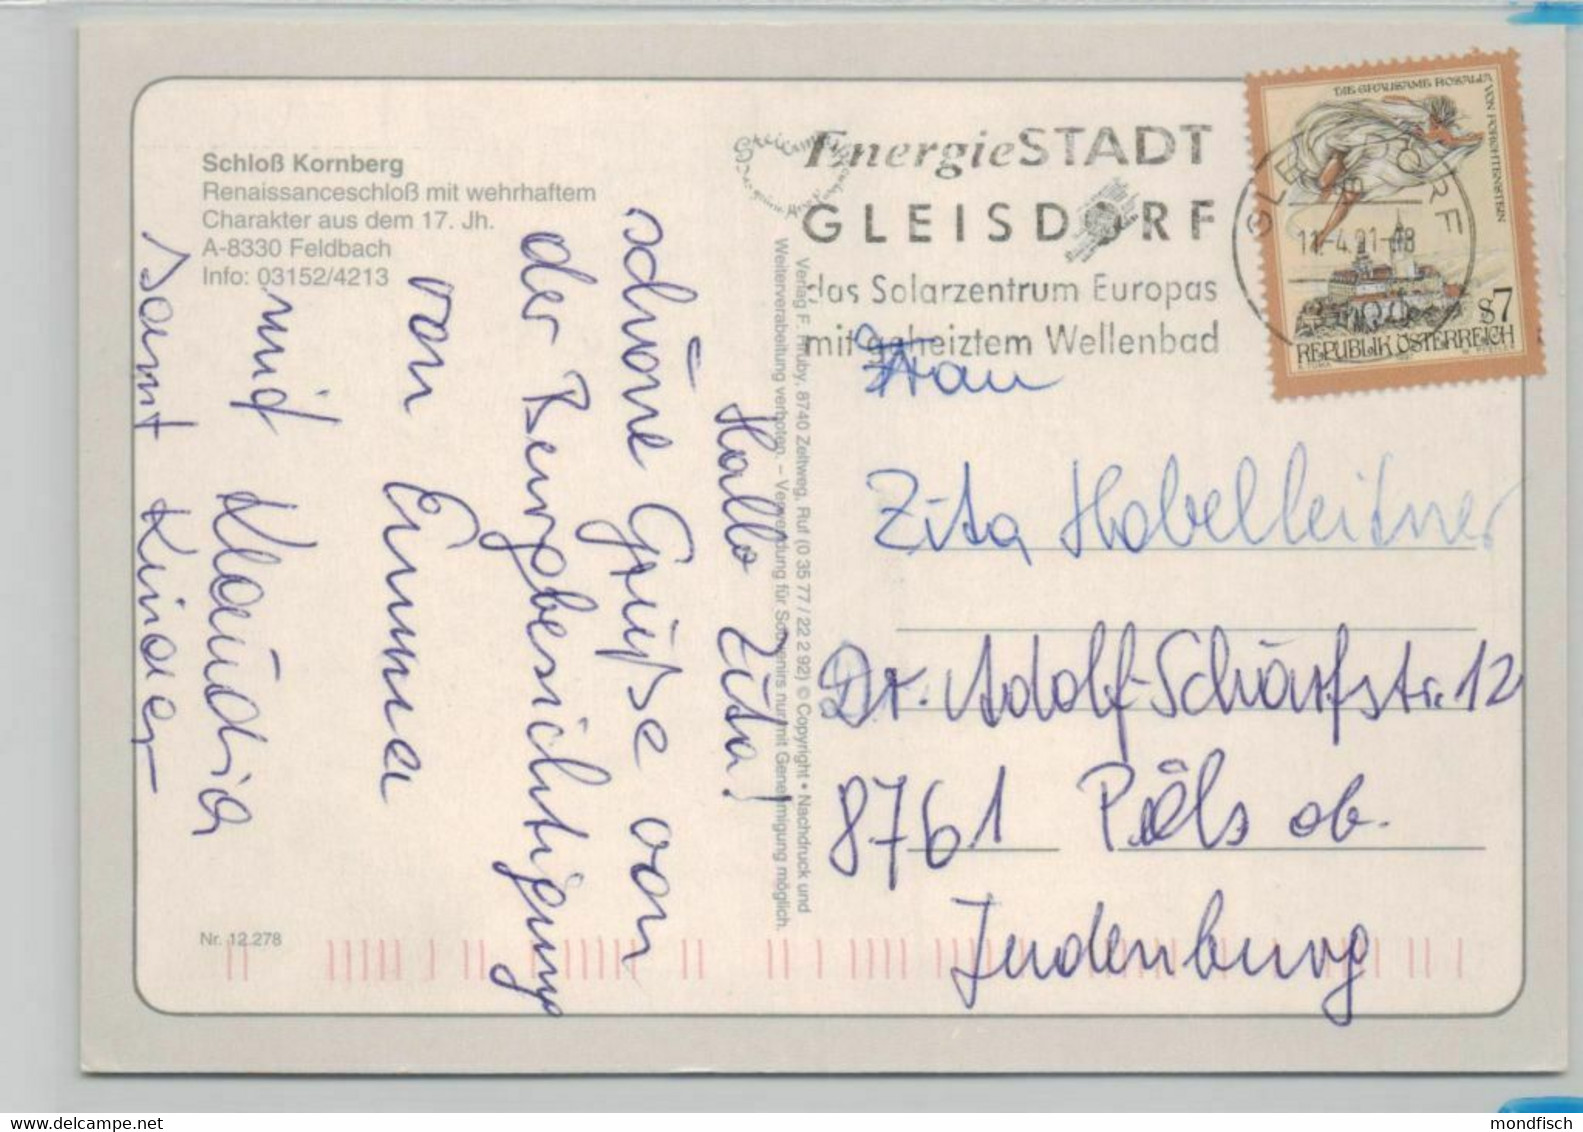 Schloß Kornberg
Renaissanceschloß mit wehrhaftem
Charakter aus dem 17. Jh.
A-8330 Feldbach
Info: 03152/4213
Hallo Zita!
schöne Grüße von
der Burgbesichtigung
von Emma
und Klaudia
samt Kinder
Nr. 12.278
Verlag F. Hruby, 8740 Zeltweg, Ruf (0 35 77 / 22 2 92) © Copyright • Nachdruck und
Weiterverarbeitung verboten. – Verwendung für Souvenirs nur mit Genehmigung möglich.
EnergieSTADT
GLEISDORF
das Solarzentrum Europas
mit geheiztem Wellenbad
DIE GRAUSAME ROSALIA
VON FORCHTENSTEIN
S7
REPUBLIK ÖSTERREICH
Frau
Zita Habelleitner
Dr. Adolf-Schärfstr. 12
8761 Pöls ob.
Judenburg
mondfisch